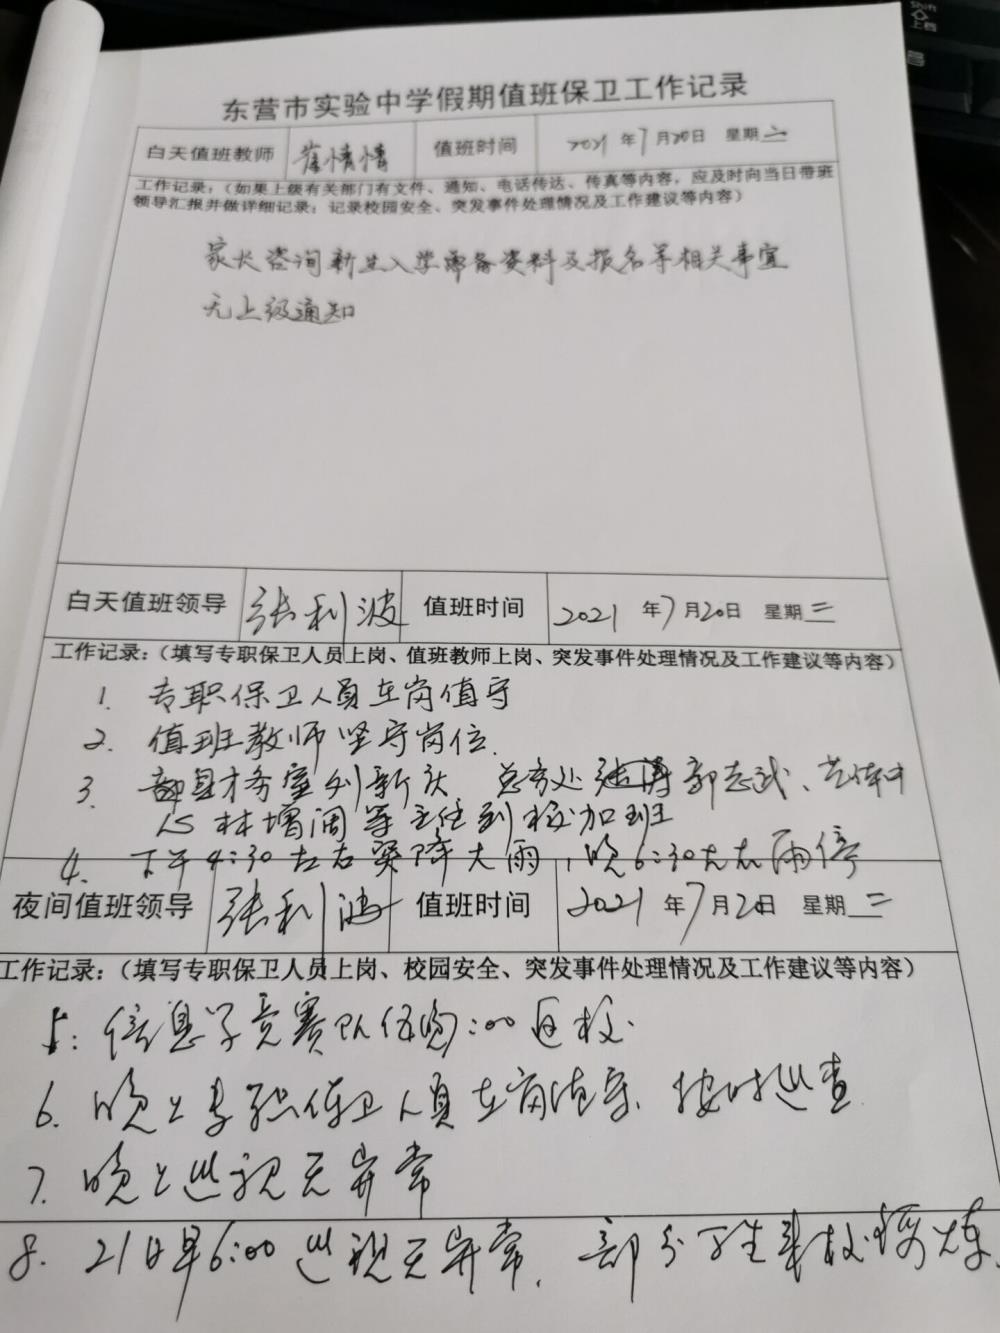 东营市实验中学假期值班保卫工作记录
白天值班教师 崔倩倩 值班时间 2021 年 7 月 20 日 星期 二
工作记录：（如果上级有关部门有文件、通知、电话传达、传真等内容，应及时向当日带班
领导汇报并做详细记录；记录校园安全、突发事件处理情况及工作建议等内容）
家长咨询新生入学需备资料及报名等相关事宜
无上级通知
白天值班领导 张利波 值班时间 2021 年 7 月 20 日 星期 二
工作记录：（填写专职保卫人员上岗、值班教师上岗、突发事件处理情况及工作建议等内容）
1. 专职保卫人员在岗值守
2. 值班教师坚守岗位.
3. 财务室刘新庆 总务处 郭志武、艺体中
心林增润等主任到校加班
4. 下午4:30左右突降大雨，晚6:30左右雨停
夜间值班领导 张利波 值班时间 2021 年 7 月 20 日 星期 二
工作记录：（填写专职保卫人员上岗、校园安全、突发事件处理情况及工作建议等内容）
5: 信息学竞赛队伍晚:00返校.
6. 晚上专职保卫人员在岗值守、按时巡查.
7. 晚上巡视无异常
8. 21日早6:00巡视无异常. 部分 生 校锻炼.
Shift
上档